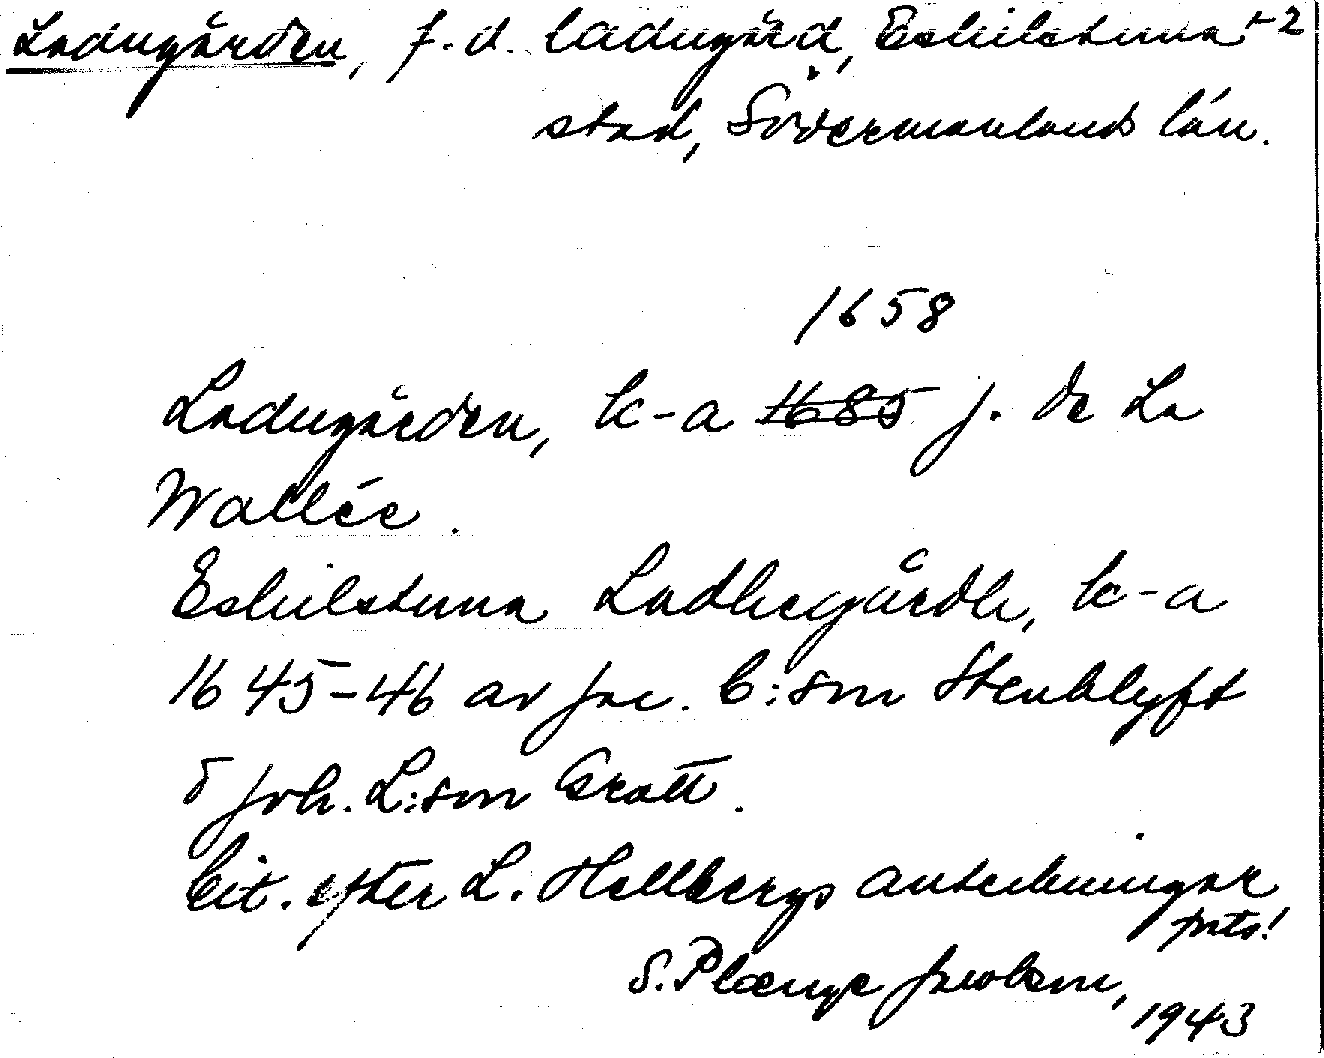 Ladugården, f.d. ladugård, Eskilstuna +2
stad, Södermanlands län.
1658
Ladugården, k-a 1685 J. de La
Wallée.
Eskilstuna Ladhegårdh, k-a
1645-46 av Jac. C:son Stenklyft
o Joh. L:son Grott.
Cit. efter L. Hellbergs anteckningar
forts!
S. Plænge Jacobson,
1943